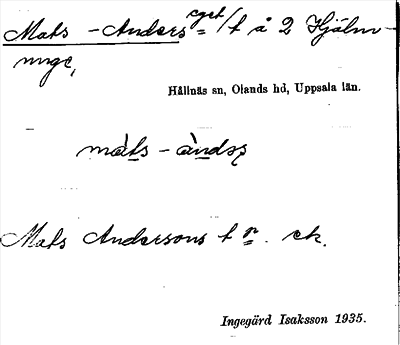 Mats - Anders get/t å 2 Hjälm-
unge,
Hållnäs sn, Olands hd, Uppsala län.
màts - àndsɽ
Mats Andersons t n. ek.
Ingegärd Isaksson 1935.